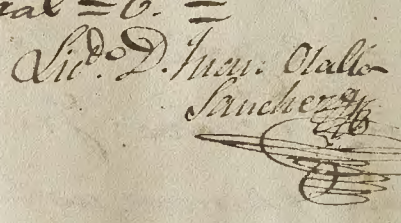 ral = 6. =
Lic.do D. Juan Olallo
Sanchez